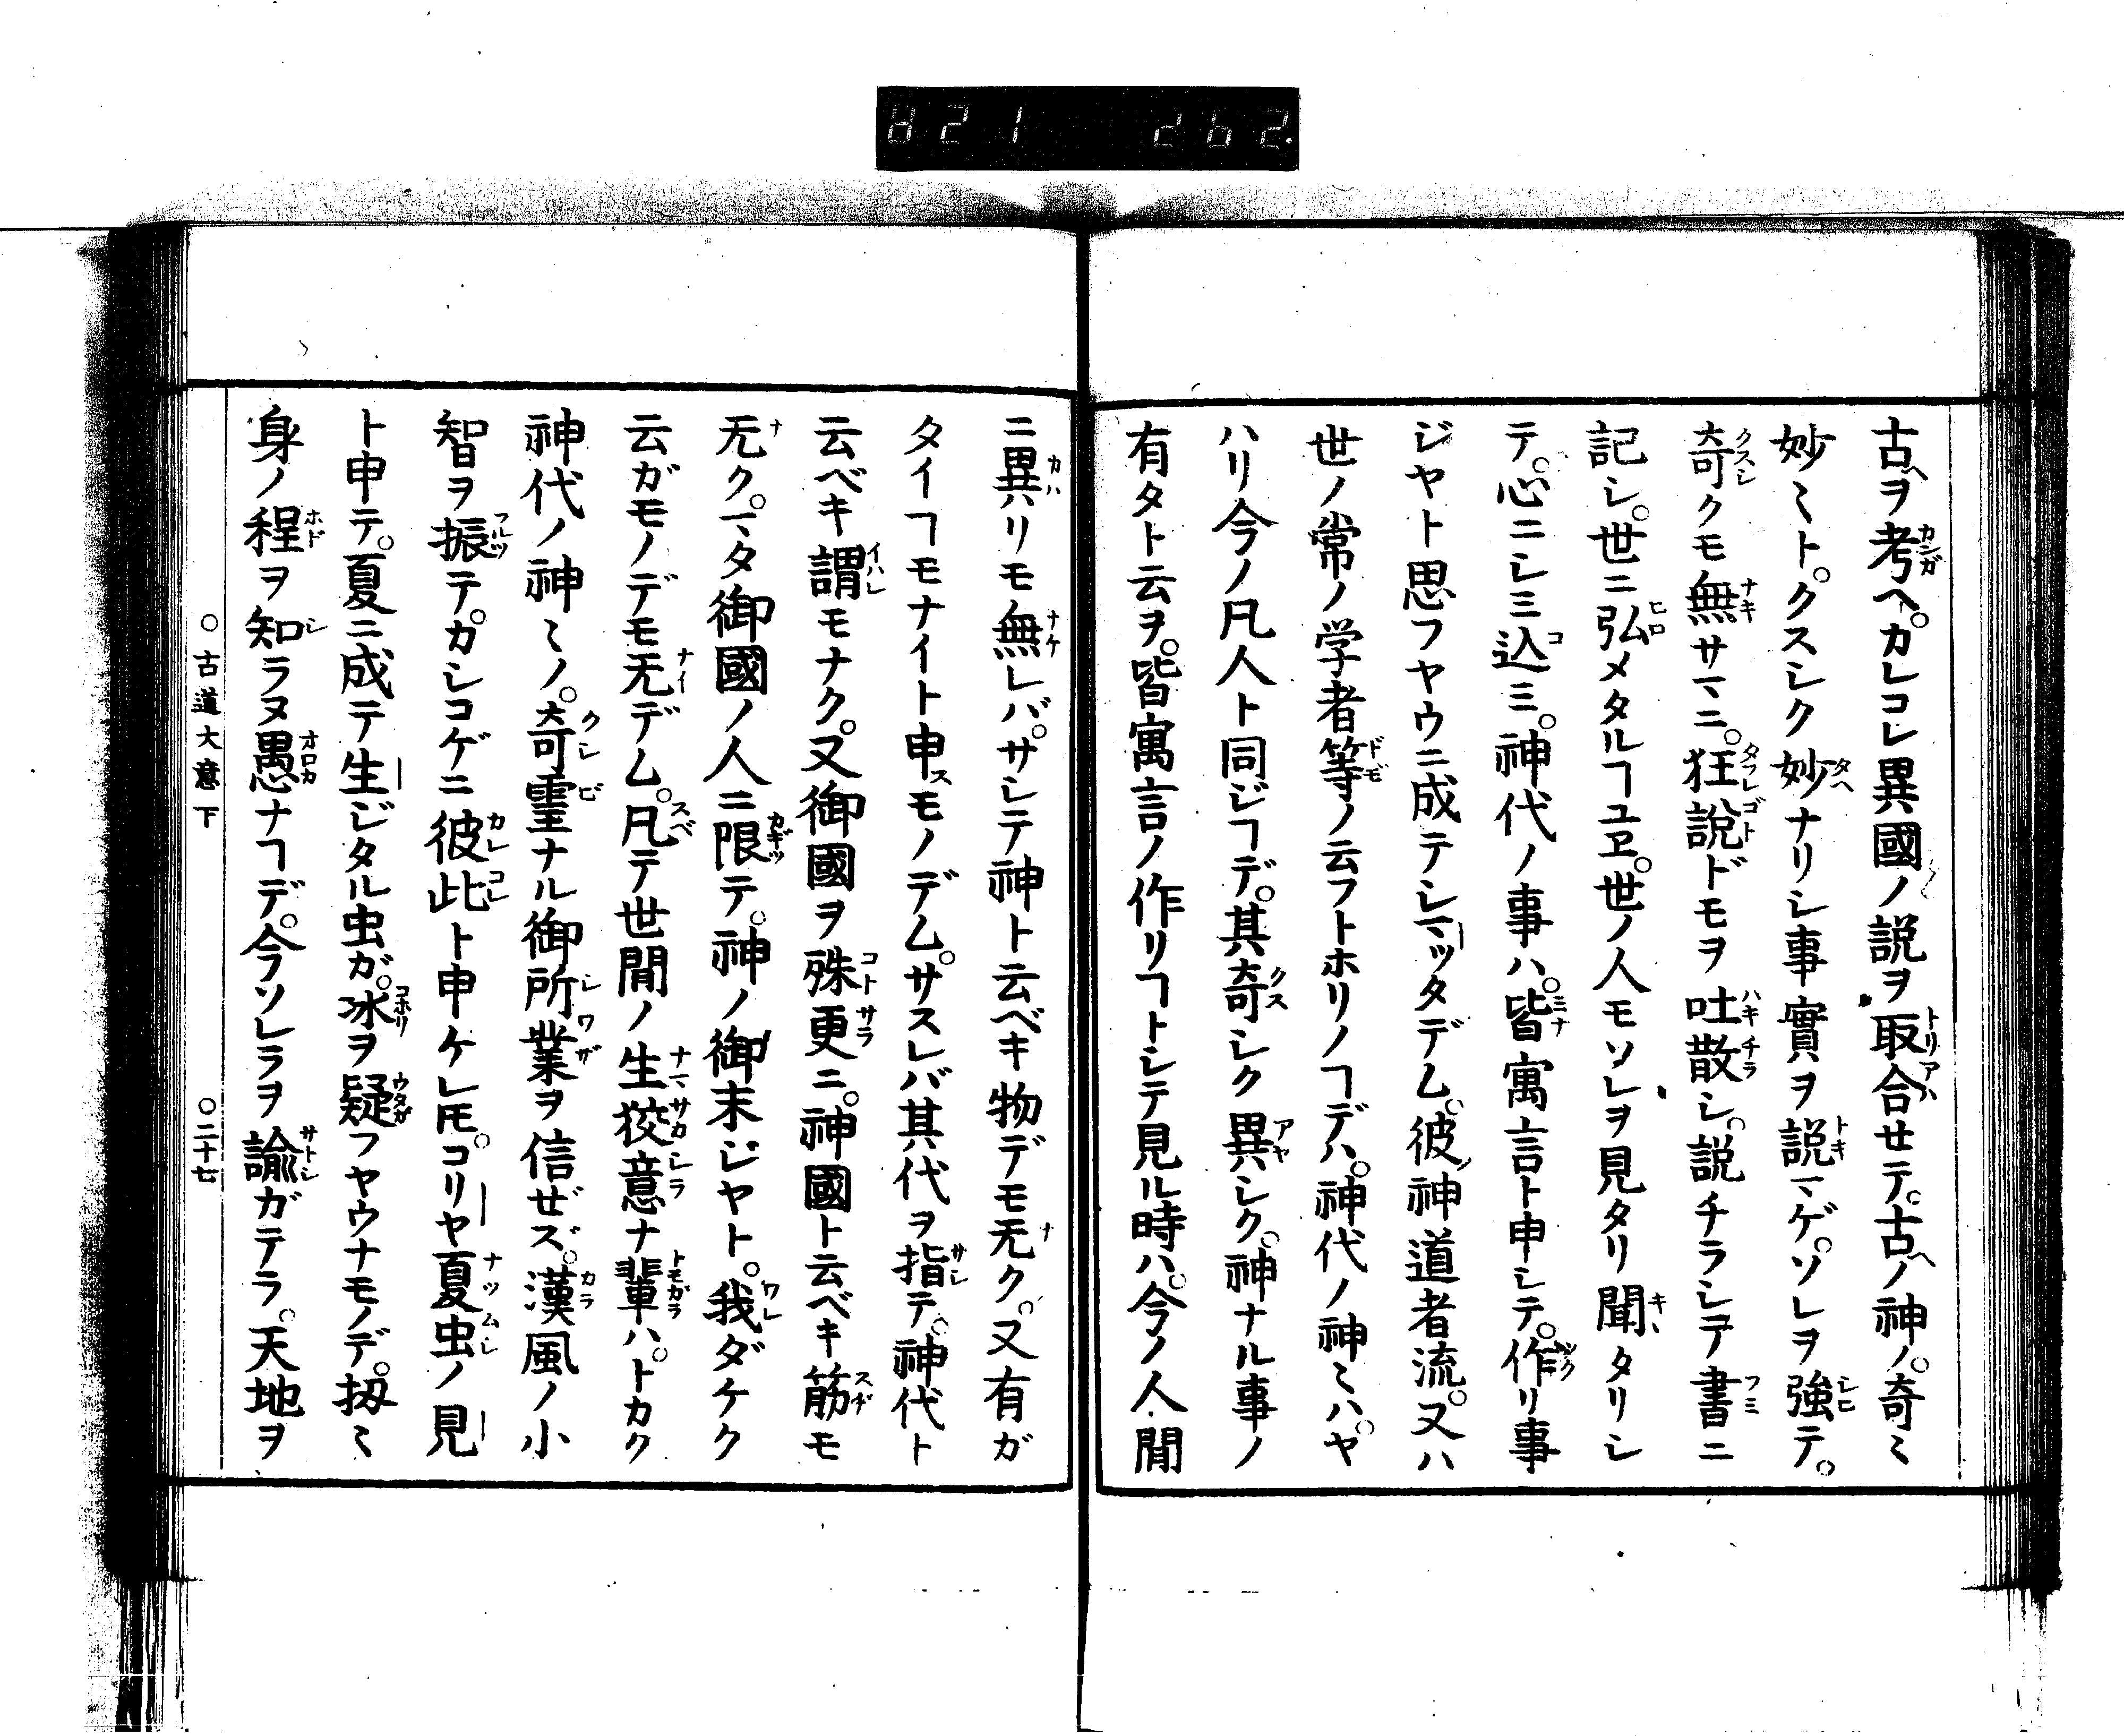 821 262
古ヘヲ考ヘ。カレコレ異國ノ説ヲ取合セテ。古ヘノ神ノ。奇ミ
妙ミト。クスシク妙ナリシ事實ヲ説マゲ。ソレヲ強テ。
奇クモ無サマニ。狂說ドモヲ吐散シ。説チラシテ書ニ
記シ。世ニ弘メタルヿユヱ。世ノ人モソレヲ見タリ聞タリシ
テ。心ニシミ込ミ。神代ノ事ハ。皆寓言ト申シテ。作リ事
ジヤト思フヤウニ成テシマツタデム。彼ノ神道者流。又ハ
世ノ常ノ学者等ノ云フトホリノヿデハ。神代ノ神ミハ。ヤ
ハリ今ノ凡人ト同ジヿデ。其奇シク異シク。神ナル事ノ
有タト云ヲ。皆寓言ノ作リヿトシテ見ル時ハ。今ノ人間
ニ異リモ無レバ。サシテ神ト云ベキ物デモ无ク。又有ガ
タイヿモナイト申スモノデム。サスレバ其代ヲ指テ。神代ト
云ベキ謂モナク。又御國ヲ殊更ニ。神國ト云ベキ筋モ
无ク。マタ御國ノ人ニ限テ。神ノ御末ジヤト。我ダケク
云ガモノデモ无デム。凡テ世間ノ生狡意ナ輩ハ。トカク
神代ノ神ミノ。奇霊ナル御所業ヲ信ゼズ。漢風ノ小
智ヲ振テ。カシコゲニ彼此ト申ケレ𪜈。コリヤ夏虫ノ見
ト申テ。夏ニ成テ生ジタル虫ガ。冰ヲ疑フヤウナモノデ。扨ミ
身ノ程ヲ知ラヌ愚ナヿデ。今ソレラヲ諭ガテラ。天地ヲ
○古道大意下 ○二十七